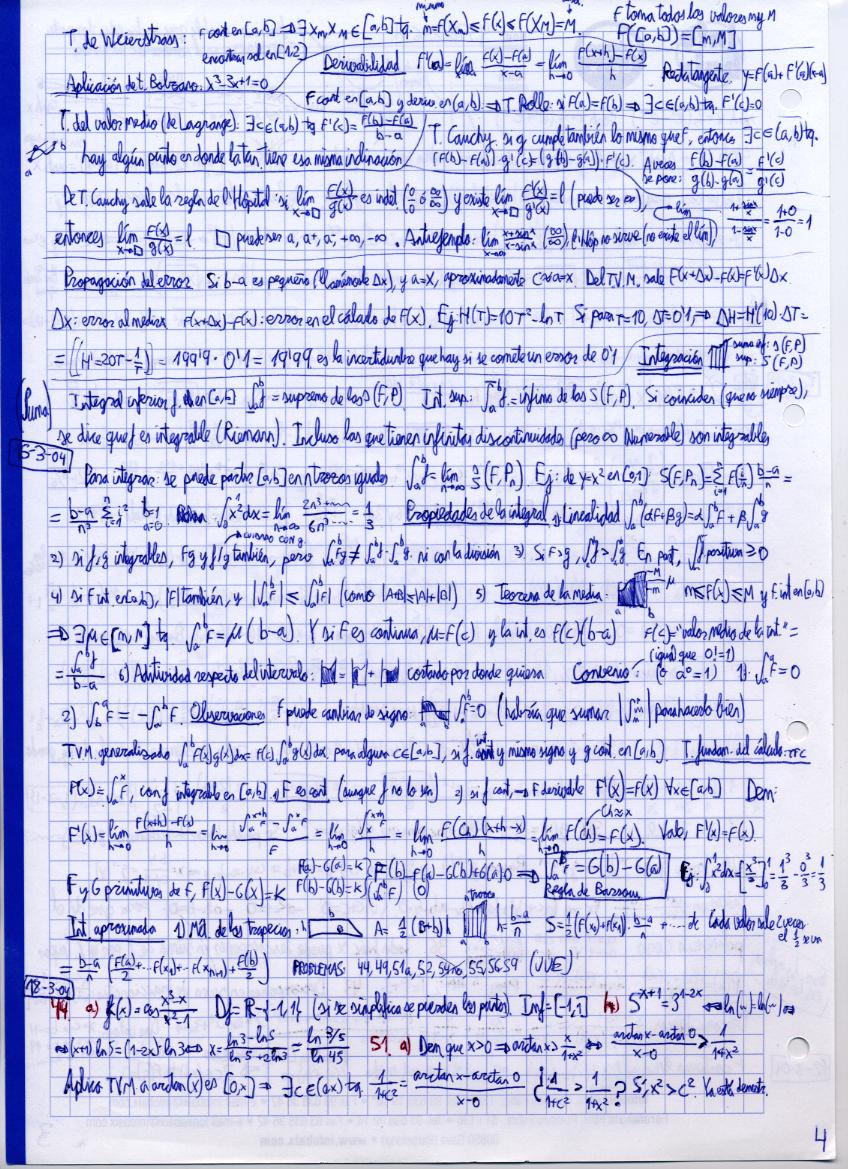 T. de Weierstrass: f cont en [a,b] ⇒ ∃ x_m, x_M ∈ [a,b] tq. m = f(x_m) ≤ f(x) ≤ f(x_M) = M. f toma todos los valores m y M
f([a,b]) = [m,M]
Aplicación de t. Bolzano: x³-3x+1=0 encontrar sol en [1,2]
Derivabilidad f'(a) = lím f(x)-f(a)/x-a = lím h→0 f(x+h)-f(x)/h Recta tangente. y=f(a)+f'(a)(x-a)
f cont en [a,b] y deriv. en (a,b) ⇒ T. Rolle: si f(a)=f(b) ⇒ ∃c∈(a,b) tq. f'(c)=0
T. del valor medio (de Lagrange): ∃c∈(a,b) tq f'(c) = f(b)-f(a)/b-a
hay algún punto en donde la tan. tiene esa misma inclinación
T. Cauchy. si g cumple también lo mismo que f, entonces ∃c∈(a,b) tq.
(f(b)-f(a))·g'(c) = (g(b)-g(a))·f'(c). A veces se pone: f(b)-f(a)/g(b)-g(a) = f'(c)/g'(c)
De T. Cauchy sale la regla de l'Hôpital: si lím x→□ f(x)/g(x) es indet (0/0 ó ∞/∞) y existe lím x→□ f'(x)/g'(x) = l (puede ser ∞),
entonces lím x→□ f(x)/g(x) = l. □ puede ser a, a⁺, a⁻, +∞, -∞. Antiejemplo: lím x→∞ x+sinx/x-sinx (∞/∞), l'Hôp no sirve (no existe el lím), lím 1+sinx/x / 1-sinx/x = 1+0/1-0 = 1
Propagación del error Si b-a es pequeño (llamémosle Δx), y a=x, aproximadamente c≈a=x. Del T.V.M. sale f(x+Δx)-f(x)=f'(x)Δx.
Δx: error al medir x f(x+Δx)-f(x): error en el cálculo de f(x). Ej: H(T)=10T²-lnT Si para T=10, ΔT=0'1, ⇒ ΔH=H'(10)·ΔT=
= [(H'=20T-1/T)] = 199'9·0'1 = 19'99 es la incertidumbre que hay si se comete un error de 0'1
Integración suma inf: s(f,P) sup: S(f,P)
(suma) Integral inferior f en [a,b] ∫ₐᵇ f = supremo de las s(f,P). Int. sup: ∫ₐᵇ f = ínfimo de las S(f,P). Si coinciden (que no siempre),
se dice que f es integrable (Riemann). Incluso las que tienen infinitas discontinuidades (pero ∞ numerable) son integrables
Para integrar: se puede partir [a,b] en n trozos iguales ∫ₐᵇ f = lím n→∞ S(f,Pn). Ej: de y=x² en [0,1]: S(f,Pn) = Σ f(i/n) b-a/n =
= b-a/n³ Σ i² b=1 a=0 ∫₀¹ x²dx = lím n→∞ 2n³+.../6n³... = 1/3 Propiedades de la integral 1) Linealidad ∫ₐᵇ(αf+βg) = α∫ₐᵇ f + β∫ₐᵇ g
2) si f, g integrables, fg y f/g también, pero ∫ₐᵇ fg ≠ ∫ₐᵇ f · ∫ₐᵇ g. ni con la división 3) Si f>g, ∫f > ∫g. En part, ∫ positiva ≥ 0
4) si f int en [a,b], |f| también, y |∫ₐᵇ f| ≤ ∫ₐᵇ |f| (como |A+B| ≤ |A|+|B|) 5) Teorema de la media: m≤f(x)≤M y f. int en [a,b]
⇒ ∃μ∈[m,M] tq. ∫ₐᵇ f = μ(b-a). Y si f es continua, μ=f(c) y la int. es f(c)(b-a) f(c)="valor medio de la int." =
= ∫ₐᵇ f/b-a 6) Aditividad respecto del intervalo: cortando por donde quiera Convenio: (igual que 0!=1) (ó a⁰=1) 1) ∫ₐᵃ f = 0
2) ∫ f = -∫ₐᵇ f. Observaciones f puede cambiar de signo ∫ₐᵇ f=0 (habría que sumar para hacerlo bien)
TVM generalizado ∫ₐᵇ f(x)g(x)dx = f(c)∫ₐᵇ g(x)dx, para algun c∈[a,b], si y mismo signo y g cont. en [a,b]. T. fundam. del cálculo: TFC
F(x) = ∫ₐˣ f, con f integrable en [a,b] 1) F es cont (aunque f no lo sea) 2) si f cont, → F derivable F'(x)=f(x) ∀x∈[a,b] Dem:
F'(x) = lím h→0 F(x+h)-F(x)/h = lím h→0 = lím h→0 = lím h→0 f(Ch)(x+h-x)/h = lím h→0 f(Ch) = f(x). Vale, F'(x)=f(x).
F y G primitivas de f, F(x)-G(x)=k F(a)-G(a)=k F(b)-G(b)=k F(b)-F(a)-G(b)+G(a)=0 ⇒ ∫ₐᵇ f = G(b)-G(a) Regla de Barrow Ej: ∫₀¹ x²dx = [x³/3]₀¹ = 1³/3 - 0³/3 = 1/3
Int. aproximada 1) Mét. de los trapecios: A = 1/2(B+b)h n trozos h = b-a/n S = 1/2(f(x₀)+f(x₁))· b-a/n + ... Cada valor sale 2 veces el 1/2 se va
= b-a/n (f(a)/2 + ... f(x₁) + ... f(xₙ₋₁) + f(b)/2) PROBLEMAS: 44, 49, 51a, 52, 55, 56, 59 (JUE)
18-3-04
44 a) f(x) = x³-x/x²-1 Df = R-{-1,1} (si se simplifica se pierden los puntos). Imf=[-1,1] 5^(x+1) = 3^(1-2x) ⇔ ln(~)=ln(~) ⇔
⇔ (x+1)ln5 = (1-2x)·ln3 ⇔ x = ln3-ln5/ln5+2ln3 = ln 3/5 / ln 45 51. a) Dem que x>0 ⇒ arctan x > x/1+x² ⇔ arctan x - arctan 0/x-0 > 1/1+x²
Aplico TVM a arctan(x) es [0,x] ⇒ ∃c∈(0,x) tq. 1/1+c² = arctan x - arctan 0/x-0 ¿1/1+c² > 1/1+x²? Sí, x²>c². Ya está demostr.
4